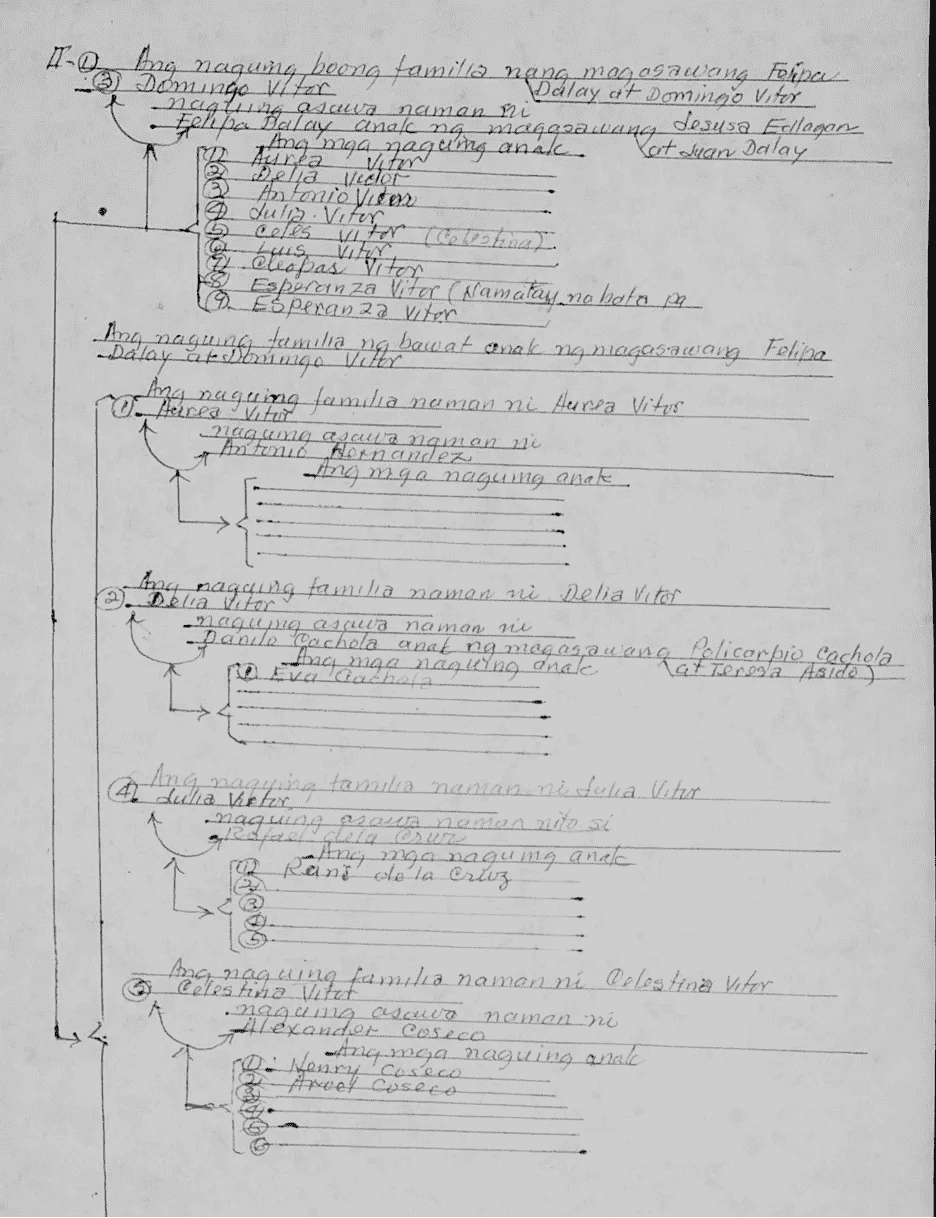 II-① Ang naguing boong familia nang magasawang Felipa Dalay at Domingo Vitor
③ Domingo Vitor
naguing asawa naman ni
Felipa Dalay anak ng magasawang Jesusa Edlagan at Juan Dalay
Ang mga naguing anak
① Aurea Vitor
② Delia Victor
③ Antonio Vitor
④ Julia Vitor
⑤ Celes Vitor (Celestina)
⑥ Luis Vitor
⑦ Cleopas Vitor
⑧ Esperanza Vitor (Namatay na bata pa
⑨ Esperanza Vitor
Ang naguing familia ng bawat anak ng magasawang Felipa
Dalay at Domingo Vitor
Ang naguing familia naman ni Aurea Vitor
① Aurea Vitor
naguing asawa naman ni
Antonio Hernandez
Ang mga naguing anak
Ang naguing familia naman ni Delia Vitor
② Delia Vitor
naguing asawa naman ni
Danilo Cachola anak ng magasawang Policarpio Cachola at Teresa Asido)
Ang mga naguing anak
① Eva Cachola
Ang naguing familia naman ni Julia Vitor
④ Julia Victor
naguing asawa naman nito si
Rafael dela Cruz
Ang mga naguing anak
① Rani de la Cruz
②
③
④
⑤
Ang naguing familia naman ni Celestina Vitor
⑤ Celestina Vitor
naguing asawa naman ni
Alexander Coseco
Ang mga naguing anak
① Henry Coseco
② Arvel Coseco
③
④
⑤
⑥